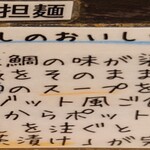 担麺
しのおいし
鯛の味が染
をそのまま
のスープを
ゾット風ご
からポット
を注ぐと
茶漬け」が完